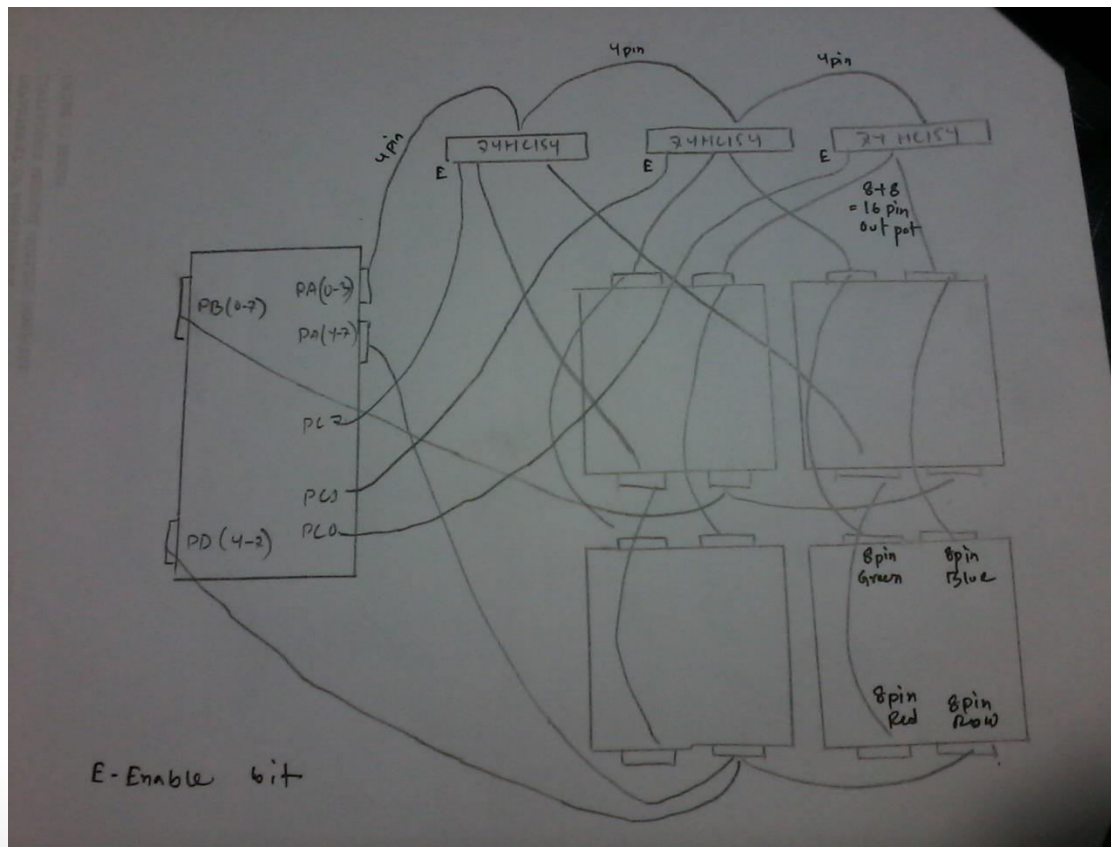 4pin
4pin
4pin
74HC154
74HC154
74 HC154
E
E
E
8+8
= 16 pin
Out pot
PB(0-7)
PA(0-3)
PA(4-7)
PC7
PC1
PC0
PD (4-7)
8pin
Green
8pin
Blue
8pin
Red
8pin
Row
E-Enable bit